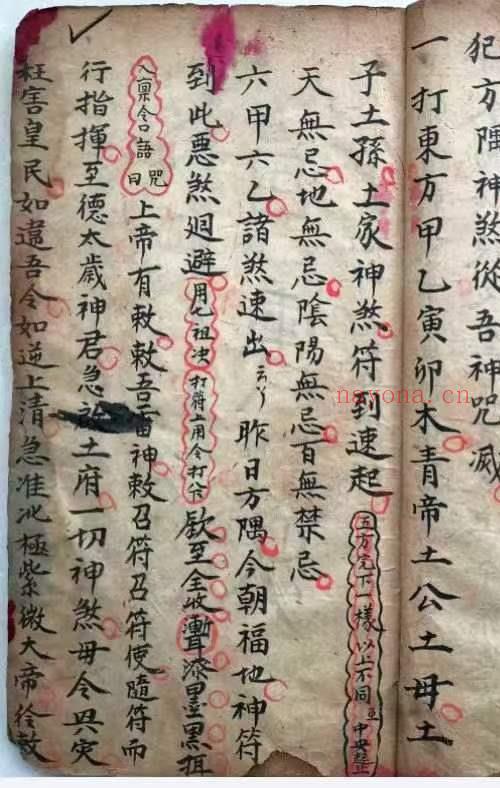 犯方隅神煞從吾神咒滅
一打東方甲乙寅卯木青帝土公土母土
子土孫土家神煞符到速起 五方完下一樣以上不同 中央
天無忌地無忌陰陽無忌百無禁忌
六甲六乙諸煞速出 昨日方隅今朝福地神符
到此惡煞迴避 用七祖决 打符上用令打 欽至全收漸耳漆墨黑
入稟令口語咒曰 上帝有敕敕吾雷神敕召符召符使隨符而
行指揮至德太歲神君急 土府一切神煞毋令興灾
枉害皇民如違吾令如逆上清急准北極紫微大帝徐敕
nayona.cn